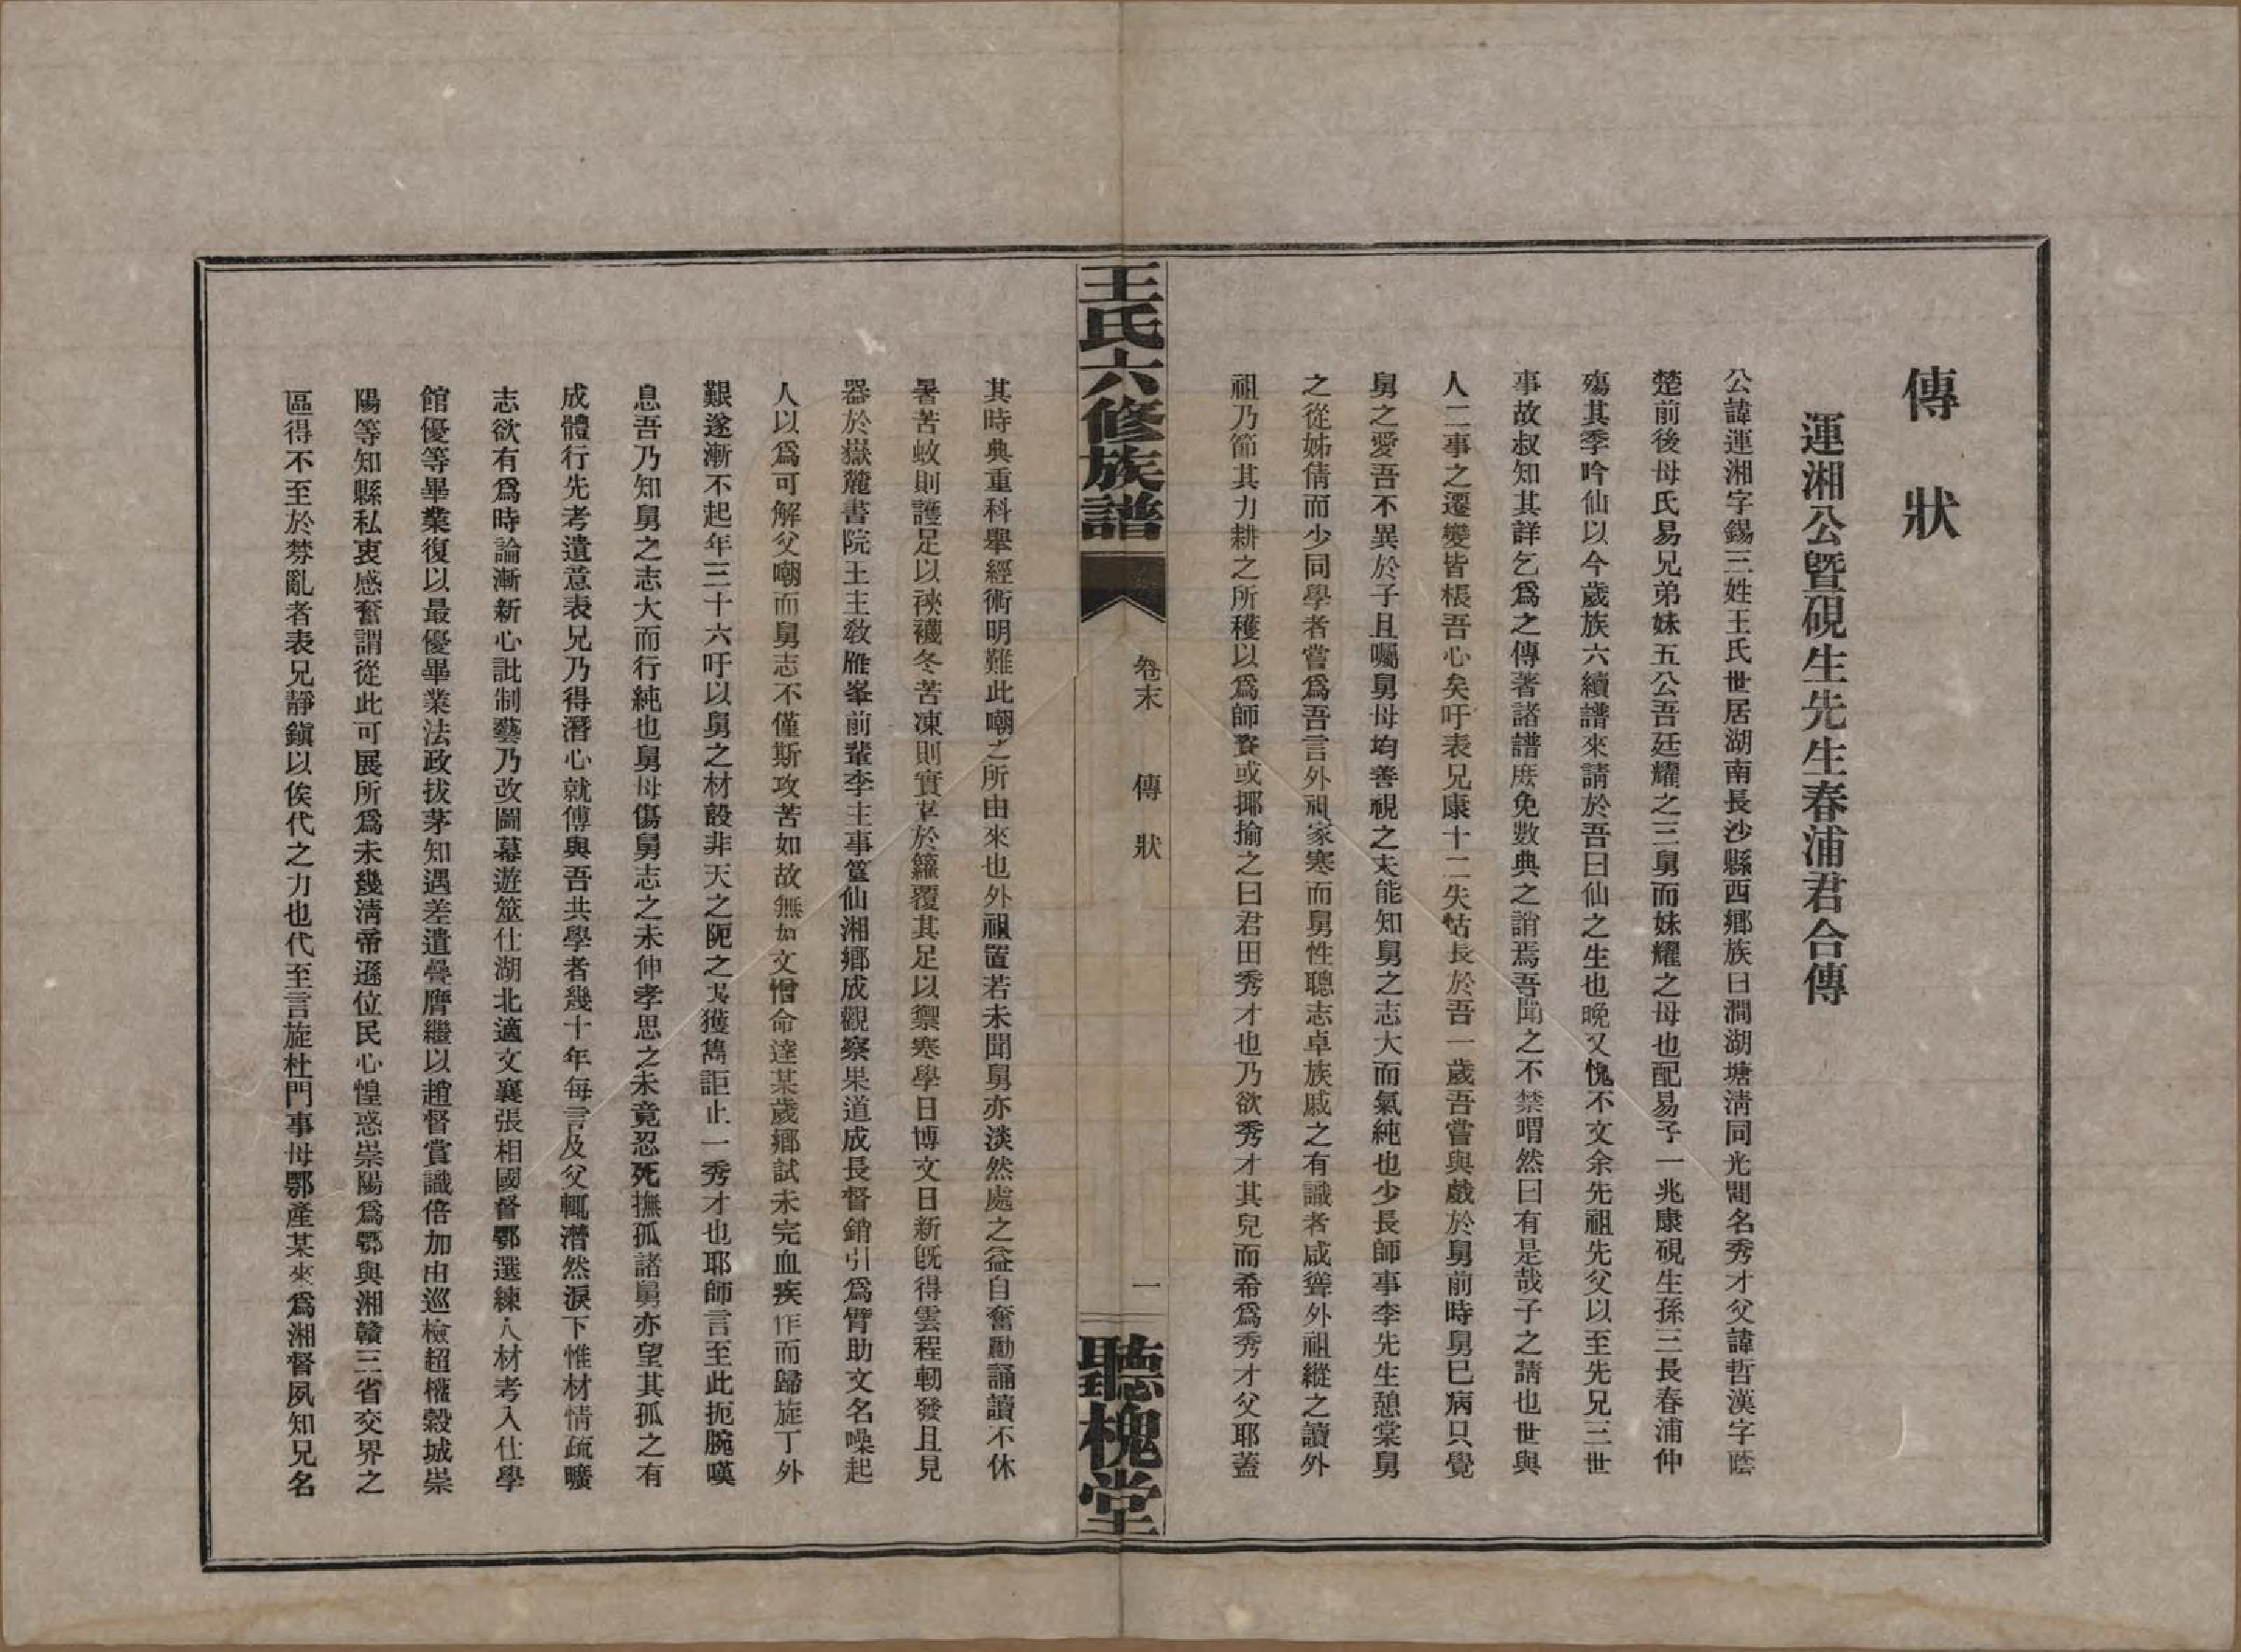 傳狀
運湘公暨硯生先生春浦君合傳
公諱運湘字錫三姓王氏世居湖南長沙縣西鄉族曰澗湖塘清同光間名秀才父諱哲漢字蔭
楚前後母氏易兄弟妹五公吾廷耀之三舅而妹耀之母也配易子一兆康硯生孫三長春浦仲
殤其季吟仙以今歲族六續譜來請於吾曰仙之生也晚又愧不文余先祖先父以至先兄三世
事故叔知其詳乞爲之傳著諸譜庶免數典之誚焉吾聞之不禁喟然曰有是哉子之請也世與
人二事之遷變皆棖吾心矣吁表兄康十二失怙長於吾一歲吾嘗與戲於舅前時舅巳病只覺
舅之愛吾不異於子且囑舅母均善視之未能知舅之志大而氣純也少長師事李先生憩棠舅
之從姊倩而少同學者嘗爲吾言外祖家寒而舅性聰志卓族戚之有識者咸聳外祖縱之讀外
祖乃節其力耕之所穫以爲師賚或揶揄之曰君田秀才也乃欲秀才其兒而希爲秀才父耶蓋
王氏六修族譜
卷末 傳狀
一
聽槐堂
其時典重科舉經術明難此嘲之所由來也外祖置若未聞舅亦淡然處之益自奮勵誦讀不休
暑苦蚊則護足以秧襪冬苦凍則實草於籮覆其足以禦寒學日博文日新旣得雲程軔發且見
器於嶽麓書院王主敎雁峯前輩李主事篁仙湘鄉成觀察果道成長督銷引爲臂助文名噪起
人以爲可解父嘲而舅志不僅斯攻苦如故無如文憎命達某歲鄉試未完血疾作而歸旋丁外
艱遂漸不起年三十六吁以舅之材設非天之阨之其獲雋詎止一秀才也耶師言至此扼腕嘆
息吾乃知舅之志大而行純也舅母傷舅志之未伸孝思之未竟忍死撫孤諸舅亦望其孤之有
成體行先考遺意表兄乃得潛心就傅與吾共學者幾十年每言及父輒潸然淚下惟材情疏曠
志欲有爲時論漸新心訿制藝乃改圖幕遊筮仕湖北適文襄張相國督鄂選練人材考入仕學
館優等畢業復以最優畢業法政拔茅知遇差遣疊膺繼以趙督賞識倍加由巡檢超權穀城崇
陽等知縣私衷感奮謂從此可展所爲未幾淸帝遜位民心惶惑崇陽爲鄂與湘贛三省交界之
區得不至於棼亂者表兄靜鎭以俟代之力也代至言旋杜門事母鄂產某來爲湘督夙知兄名